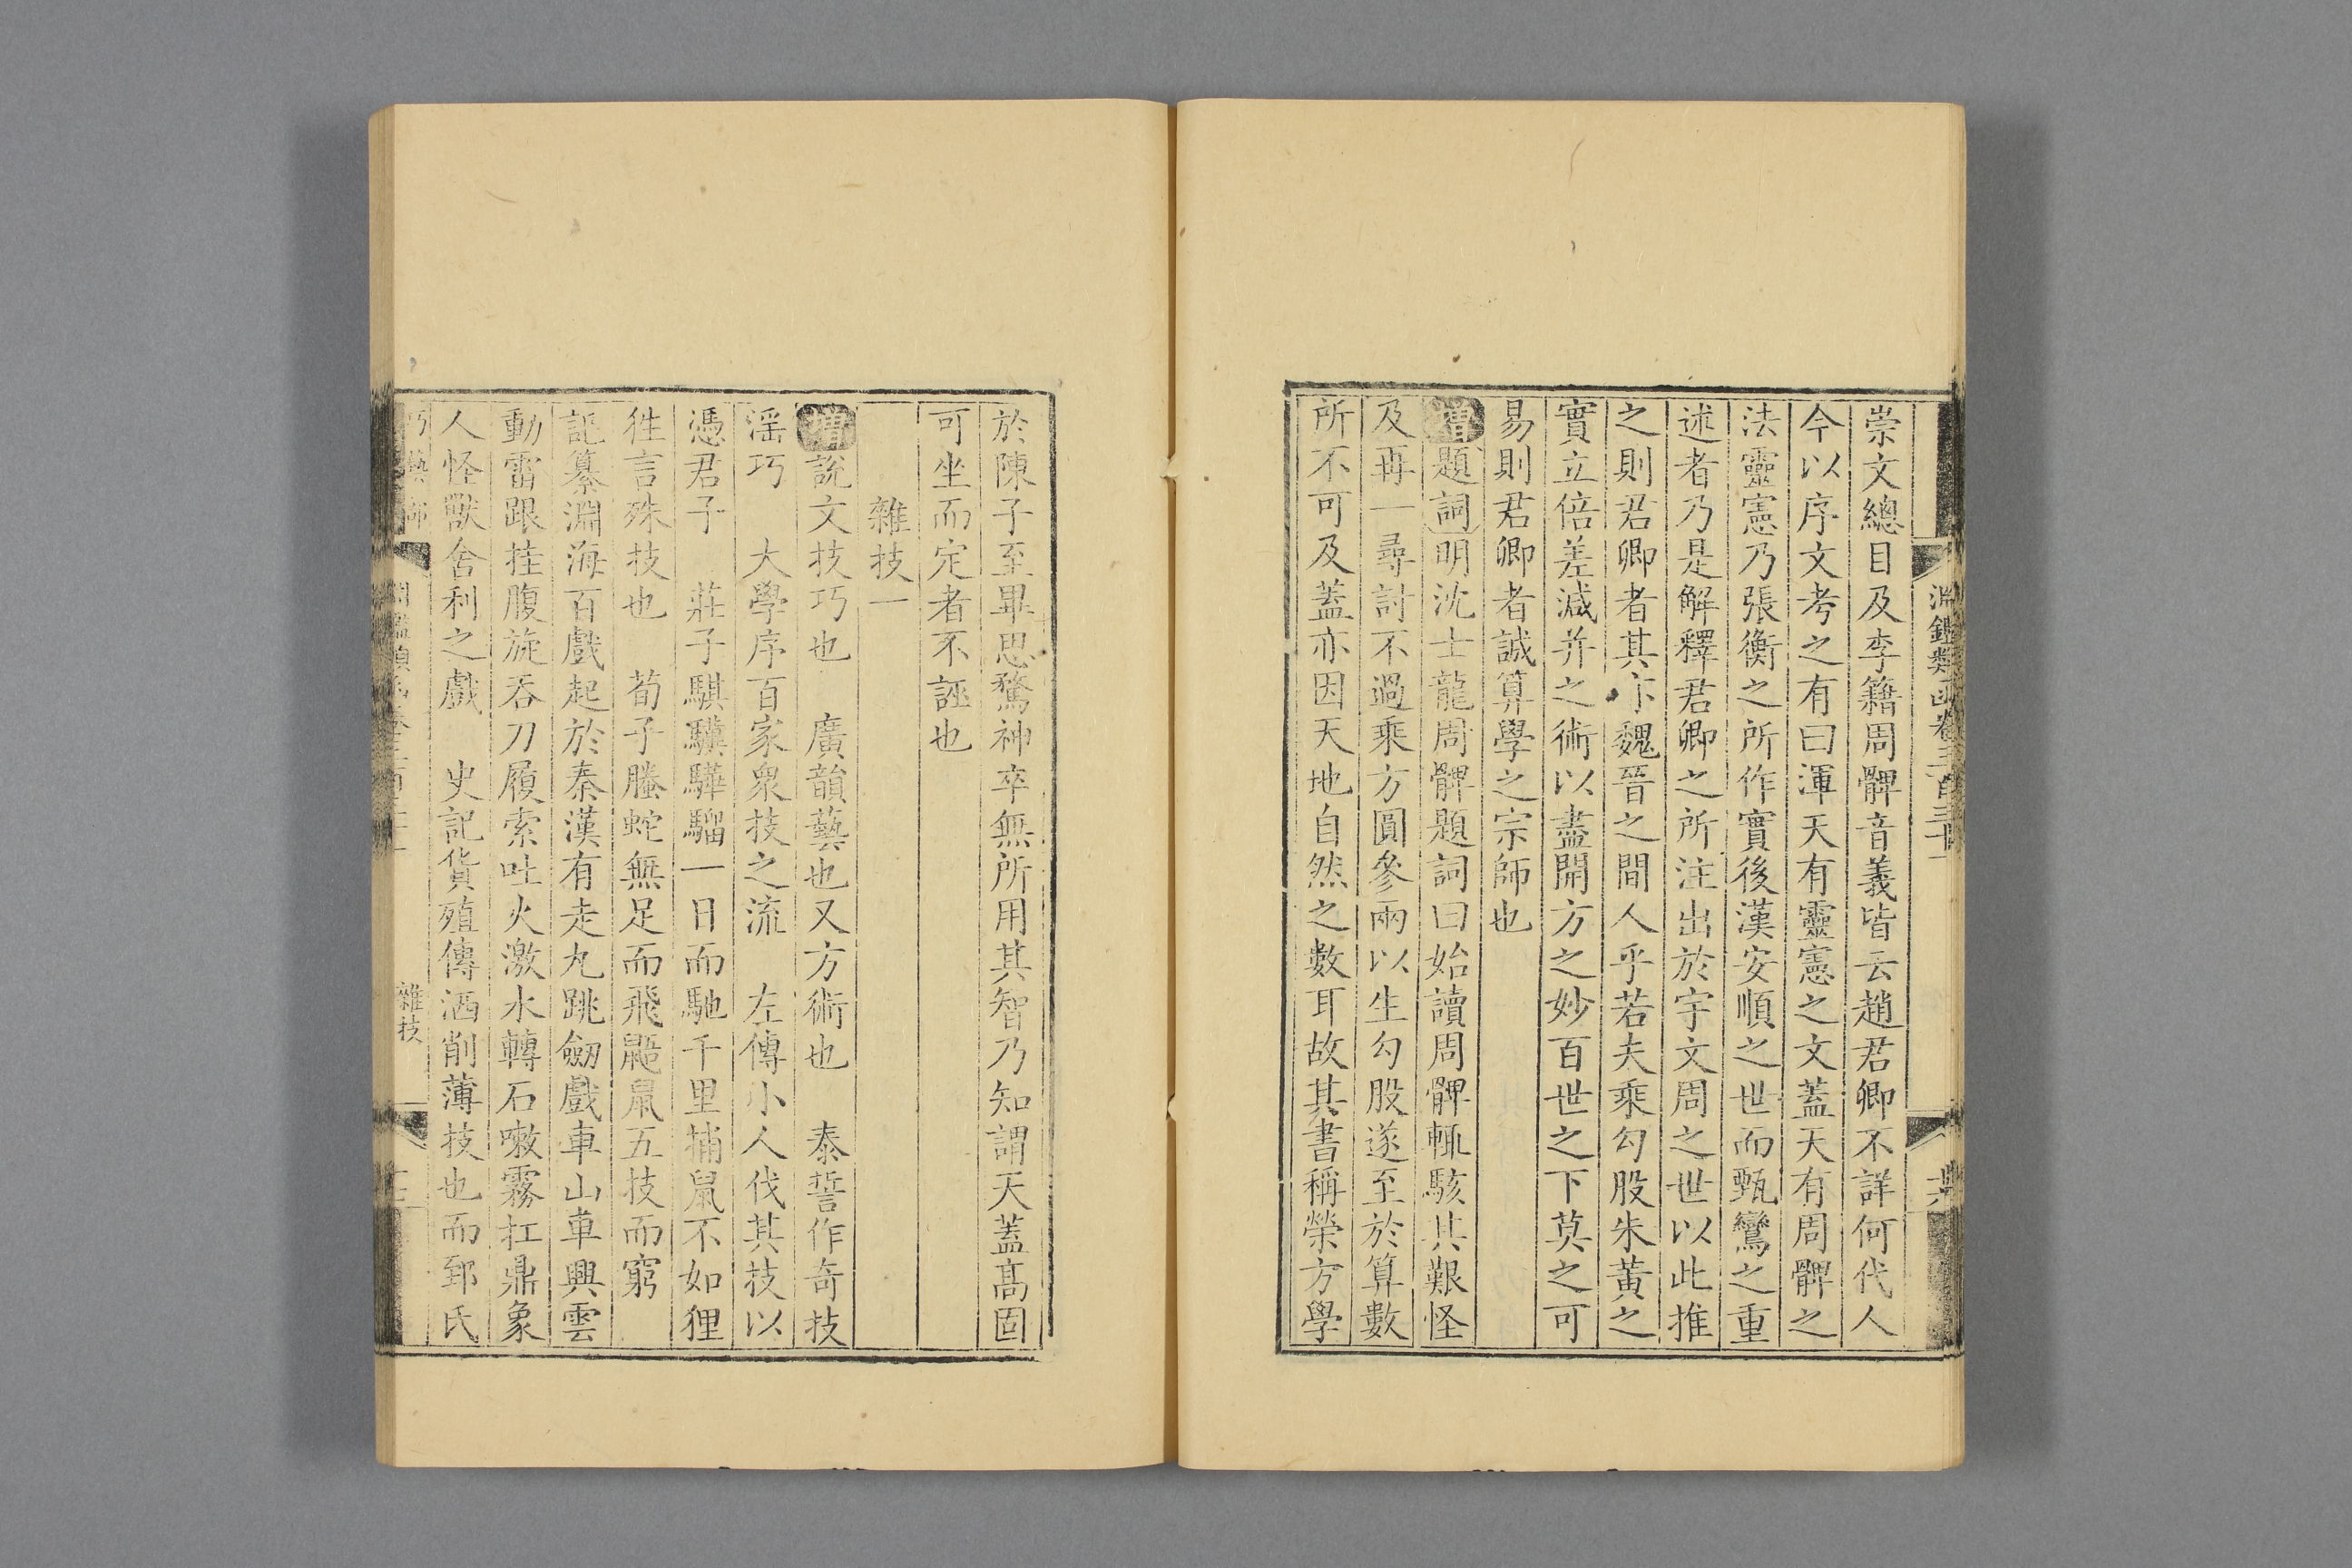 崇文總目及李籍周髀音義皆云趙君卿不詳何代人
今以序文考之有曰渾天有靈憲之文蓋天有周髀之
法靈憲乃張衡之所作實後漢安順之世而甄鸞之重
述者乃是解釋君卿之所注出於宇文周之世以此推
之則君卿者其亦魏晉之間人乎若夫乘勾股朱黃之
實立倍差減并之術以盡開方之妙百世之下莫之可
易則君卿者誠算學之宗師也
增題詞明沈士龍周髀題詞曰始讀周髀輒駭其艱怪
及再一尋討不過乘方圓參兩以生勾股遂至於算數
所不可及蓋亦因天地自然之數耳故其書稱榮方學
淵鑑類函卷三百三十一
於陳子至畢思騖神卒無所用其智乃知謂天蓋高固
可坐而定者不誣也
雜技一
增說文技巧也 廣韻藝也又方術也 泰誓作奇技
淫巧 大學序百家衆技之流 左傳小人伐其技以
憑君子 莊子騏驥驊騮一日而馳千里捕鼠不如狸
狌言殊技也 荀子螣蛇無足而飛鼫鼠五技而窮
記纂淵海百戲起於秦漢有走丸跳劒戲車山車興雲
動雷跟挂腹旋吞刀履索吐火激水轉石嗽霧扛鼎象
人怪獸舍利之戲 史記貨殖傳洒削薄技也而郅氏
巧藝部
雜技